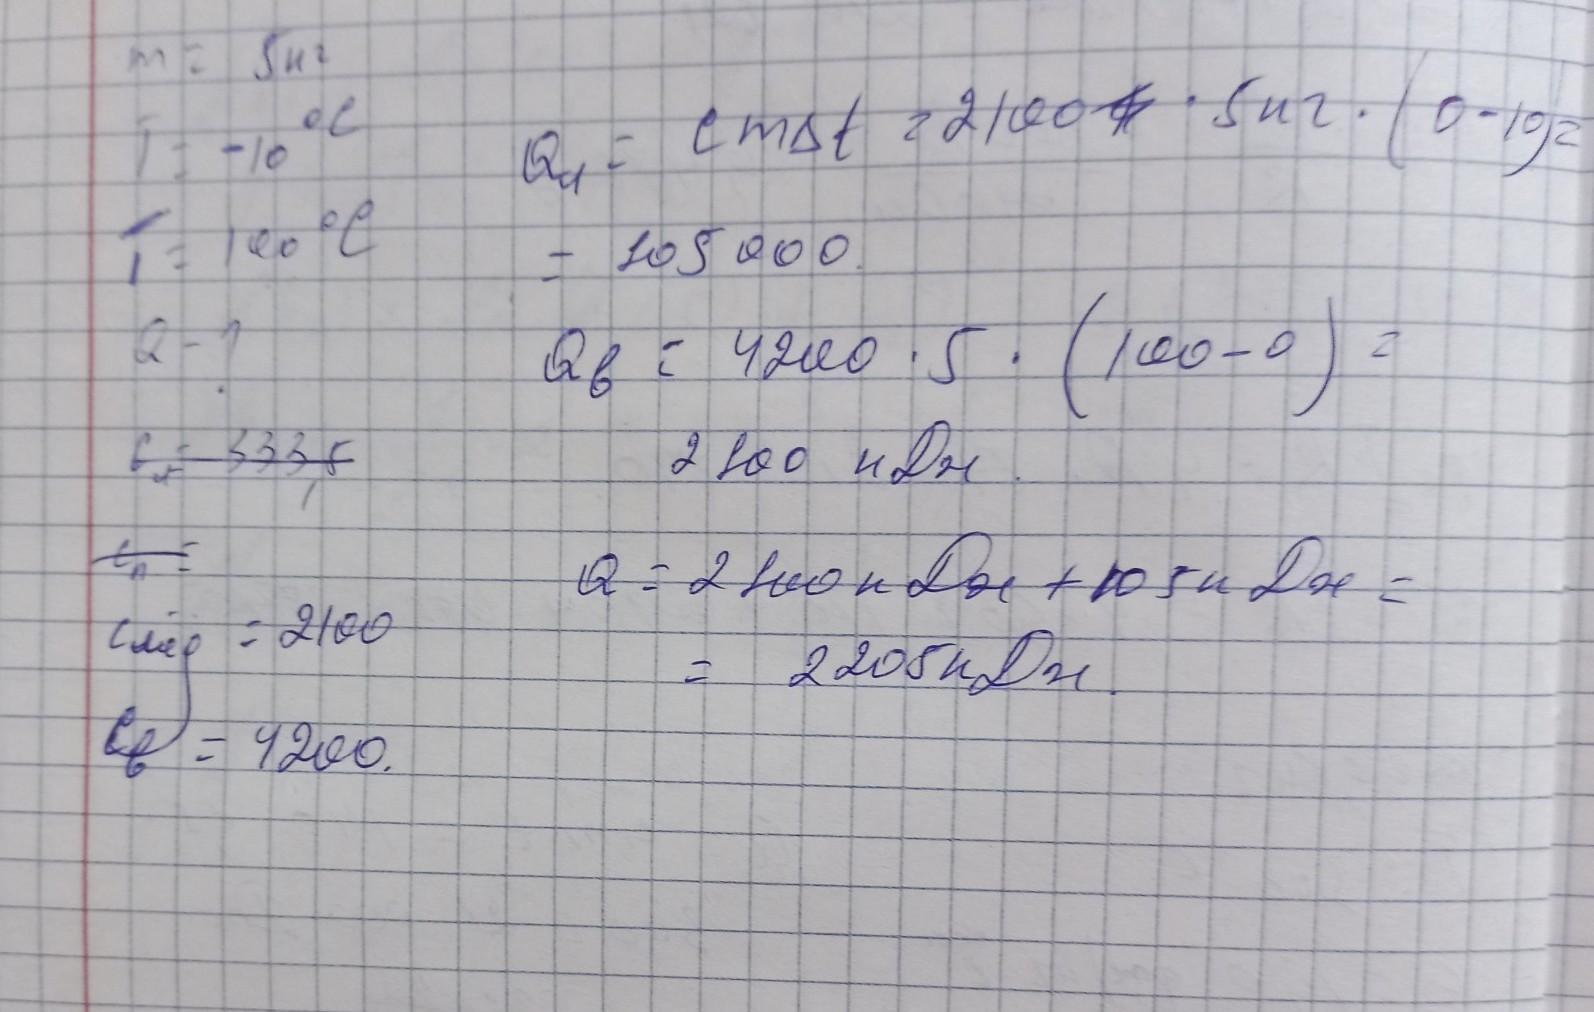 m = 5кг
T = -10 °C
T = 100 °C
Q - ?
C = 333,5
Cл =
Cлёд = 2100
Cв = 4200.
Qл = cmΔt = 2100 · 5кг · (0-10)=
= 105 000.
Qв = 4200 · 5 · (100-0) =
2100 кДж.
Q = 2100 кДж + 105 кДж =
= 2205кДж.